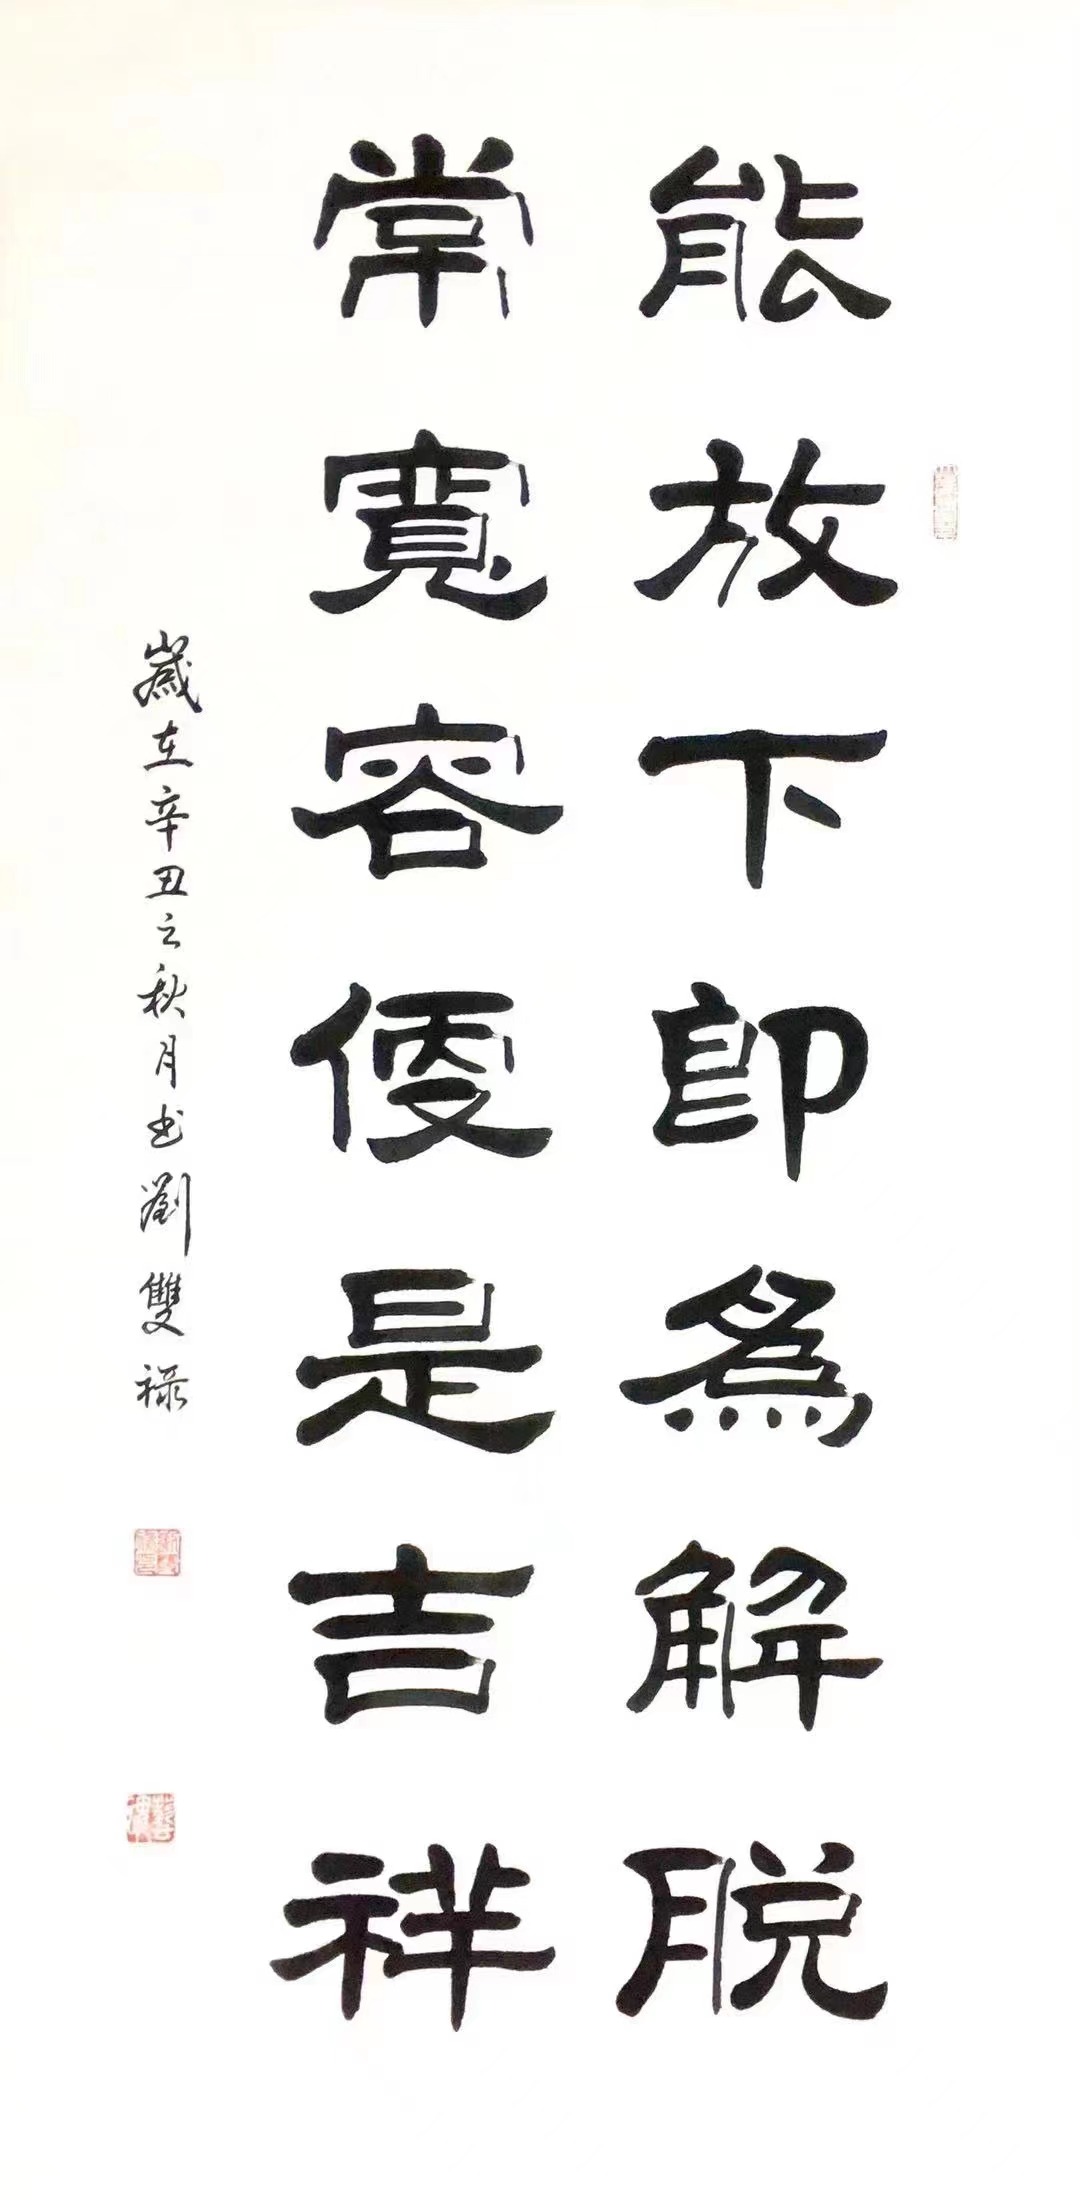 能放下即為解脫
常寬容便是吉祥
歲在辛丑之秋月書劉雙祿